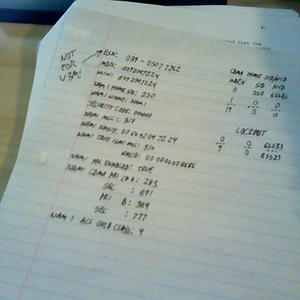 NOT
FOR
U3M!
ESN: 039 - 05077262
MDN: 6092097224
MIN: 6092097224
NAM1 HOME SID: 250
NAM1 NAME: NAM1
SECURITY CODE: 00000
NAM1 MCC: 310
NAM1 NMSID: 006092097224
NAM1 TRUE IMSI MCC: 310
NMSID: 000000008686
NAM1 PRL ENABLED: TRUE
NAM1 CDMA PRI CH A: 283
SEC : 691
PRI B: 384
SEC : 777
NAM 1 ACC OVLD CLASS: 4
that the
CDMA HOME SID/NID
INDEX SID NID
0 250 65535
1 0 0
19 0 0
LOCKOUT
0 0 65535
9 0 65535